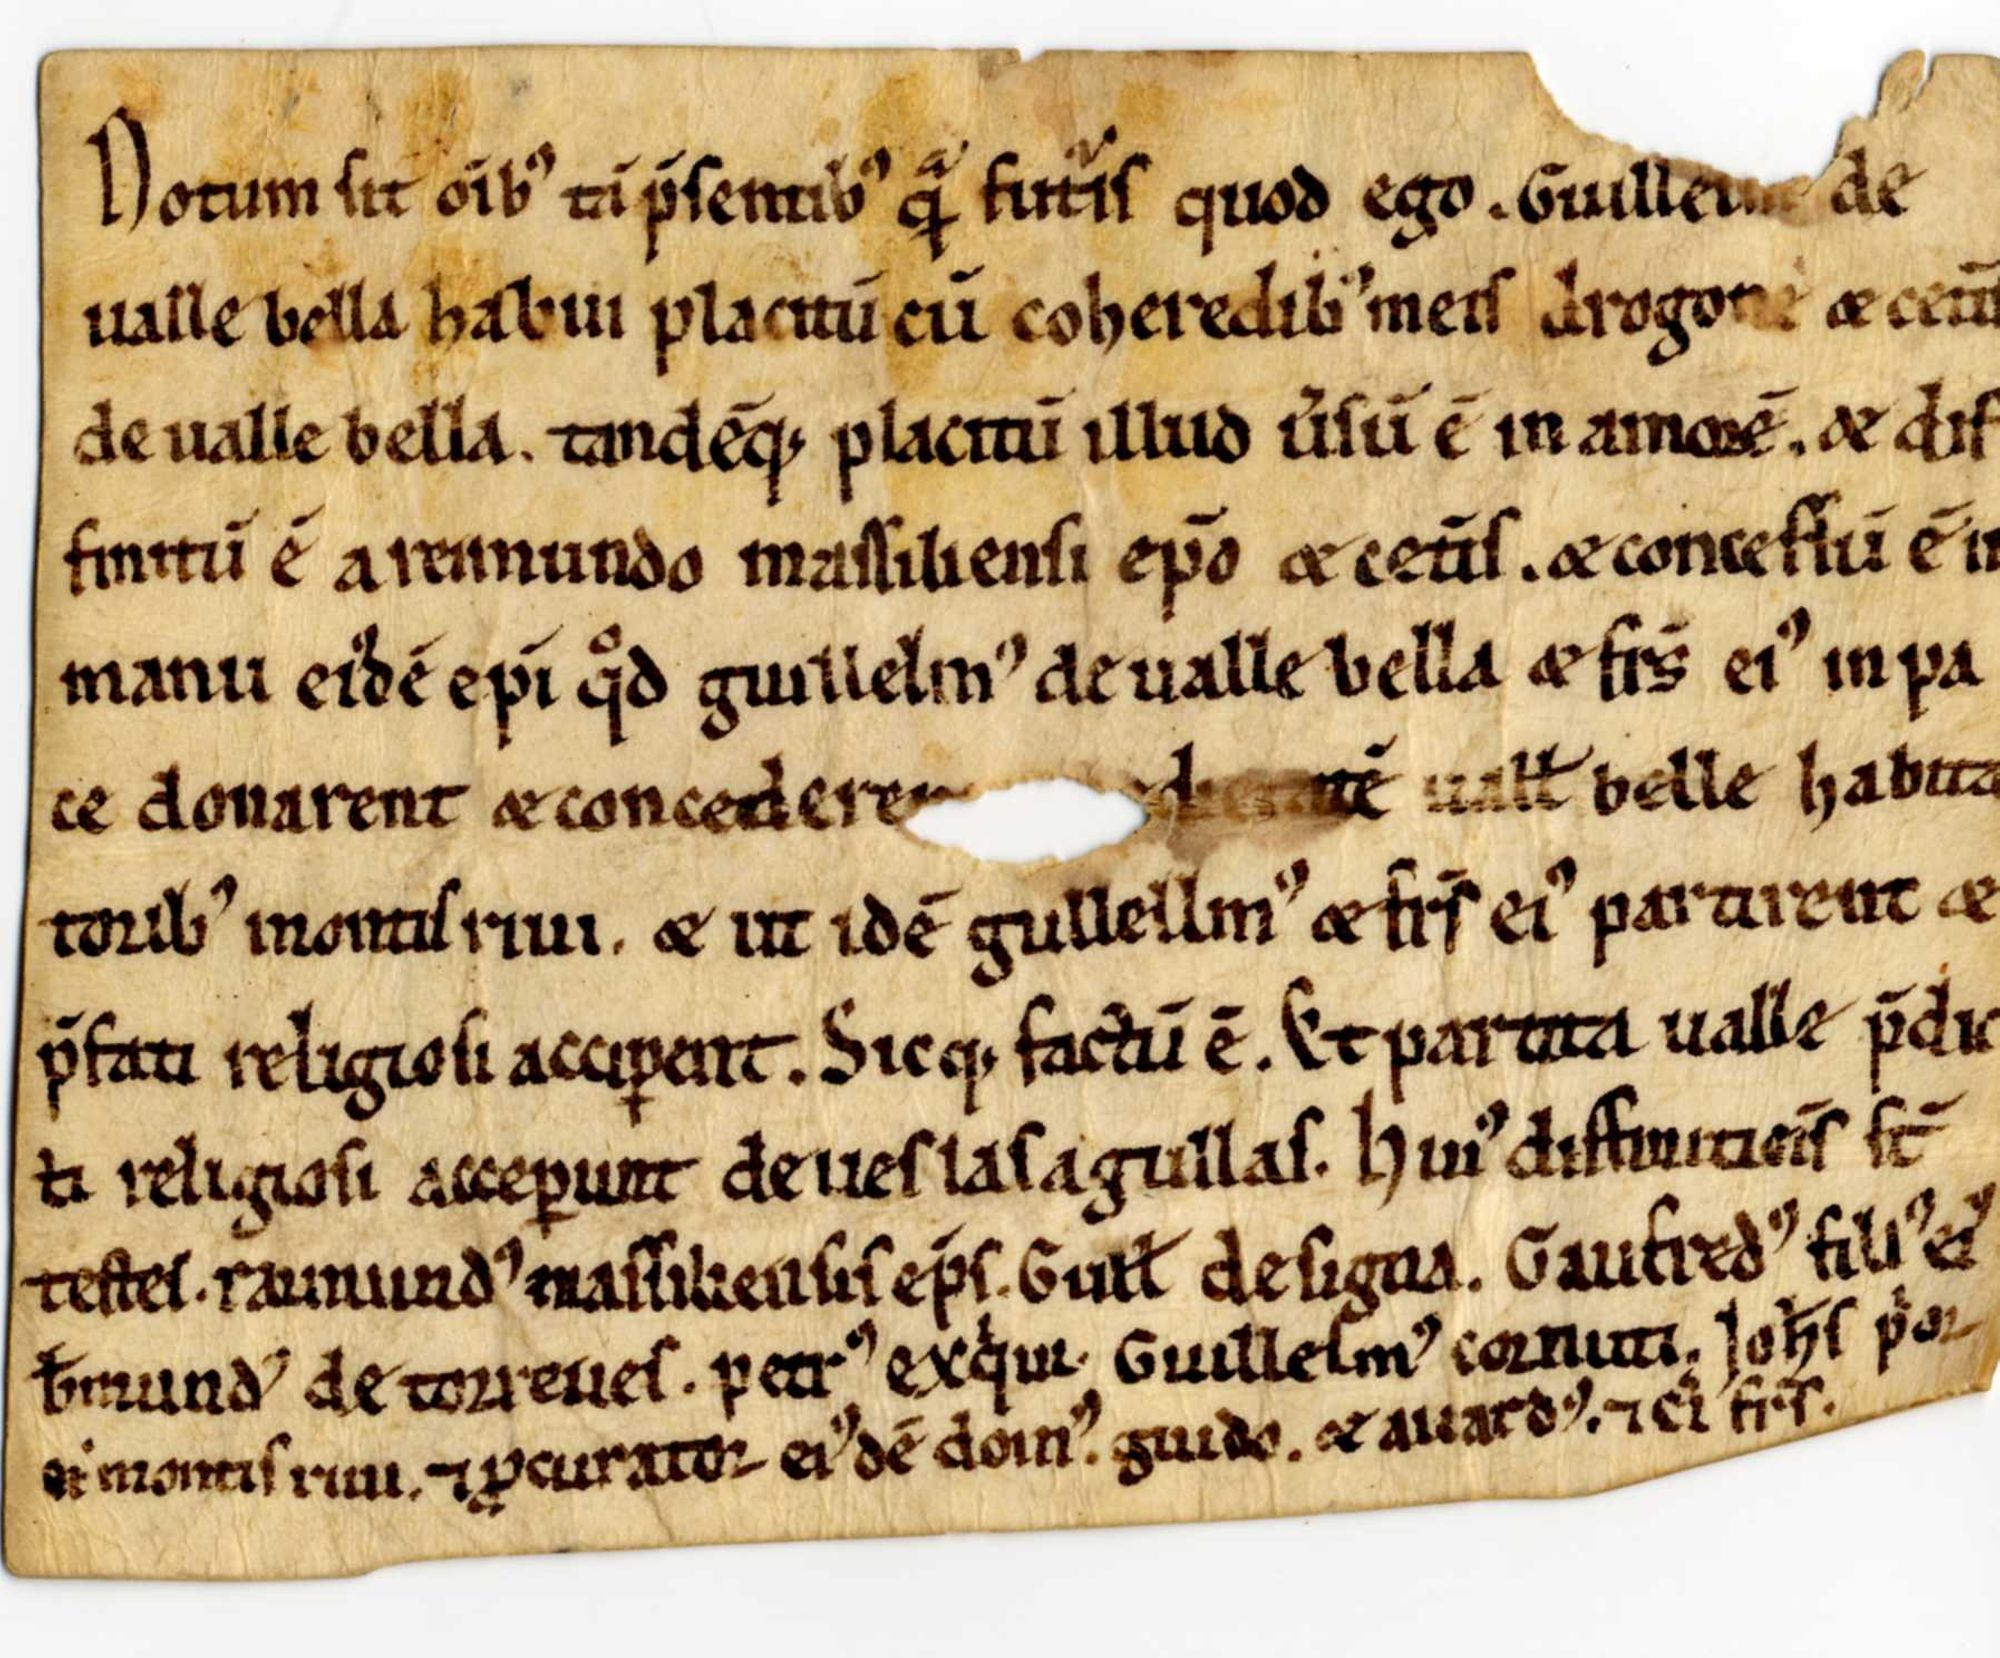 Notum sit oīb⁹ tā p̄sentib⁹ qᵃ̄ futur̄is quod ego . Guillelm de
ualle bella habui placitū cū coheredib⁹ meis drogone & cet̄is
de ualle bella . tandēq; placitū illud ūsū ē in amorē . & dif
finitū ē a reimundo massiliensi ep̄o & cet̄is . & concessū ē in
manu ei⁹dē ep̄i qͦd guillelm⁹ de ualle bella & fr̄s ei⁹ in pa
ce donarent & concederen uall̄ belle habita
torib⁹ montis riui . & ut idē gullellm⁹ & fr̄s ei⁹ partirent &
p̄fati religiosi acciꝑent . Sicq; factū ē . Et partita ualle p̄dic
ti religiosi acceꝑunt de ues las agullas . Hui⁹ diffinitiōis st̄
testes . raimund⁹ massiliensis ep̄s . Guill̄ de signa . Gaufred⁹ fili⁹ ei⁹
b̄mund⁹ de torreues . petr⁹ exqⁱui . Guillelm⁹ cornuti . Joh̄s pⁱor
ei⁹ montis riui . ⁊ ꝓcurator ei⁹dē dom⁹ . guido . & auard⁹ . ⁊ cͥ fr̄s .